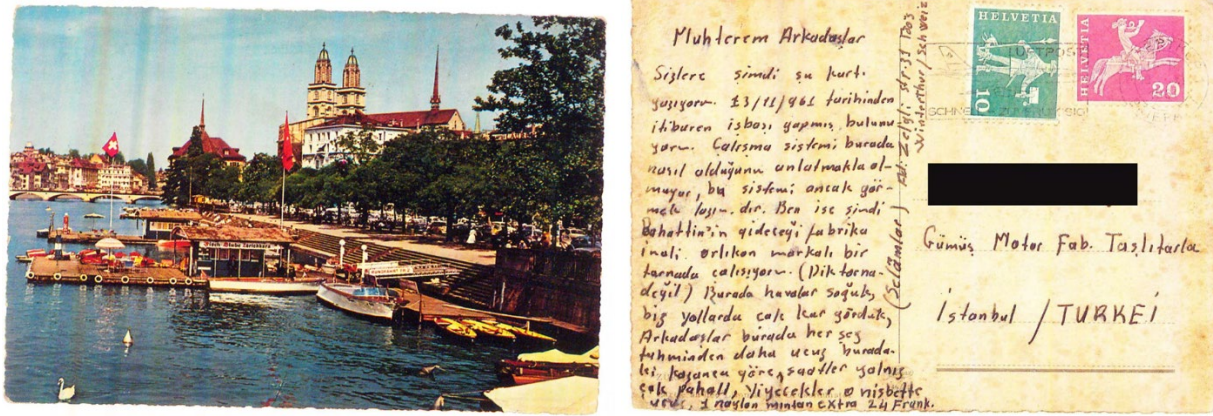 Muhterem Arkadaşlar
Sizlere şimdi şu kart.
yazıyorum. 13/11/961 tarihinden
itibaren işbaşı yapmış bulunu-
yorum. Çalışma sistemi burada
nasıl olduğunu anlatmakla ol-
muyor, bu sistemi ancak gör-
mek lazım. dır. Ben ise şimdi
Bahattin'in gideceği fabrika
imali. orlikon markalı bir
tornada çalışıyorum. (Dik torna-
değil) Burada havalar soğuk,
biz yollarda çok kar gördük,
Arkadaşlar burada her şey
tahminden daha ucuz burada-
ki kazanca göre, saatler yalnız
çok pahalı, Yiyecekler o nisbette
ucuz, 1 naylon mintan extra 24 Frank.
(Selâmlar)
Ad: Zelgli str: 33
Winterthur / Schweiz
HELVETIA
10
HELVETIA
20
LUFTPOST
Gümüş Motor Fab. Taşlıtarla
İstanbul / TURKEİ
RUNDFAHRT